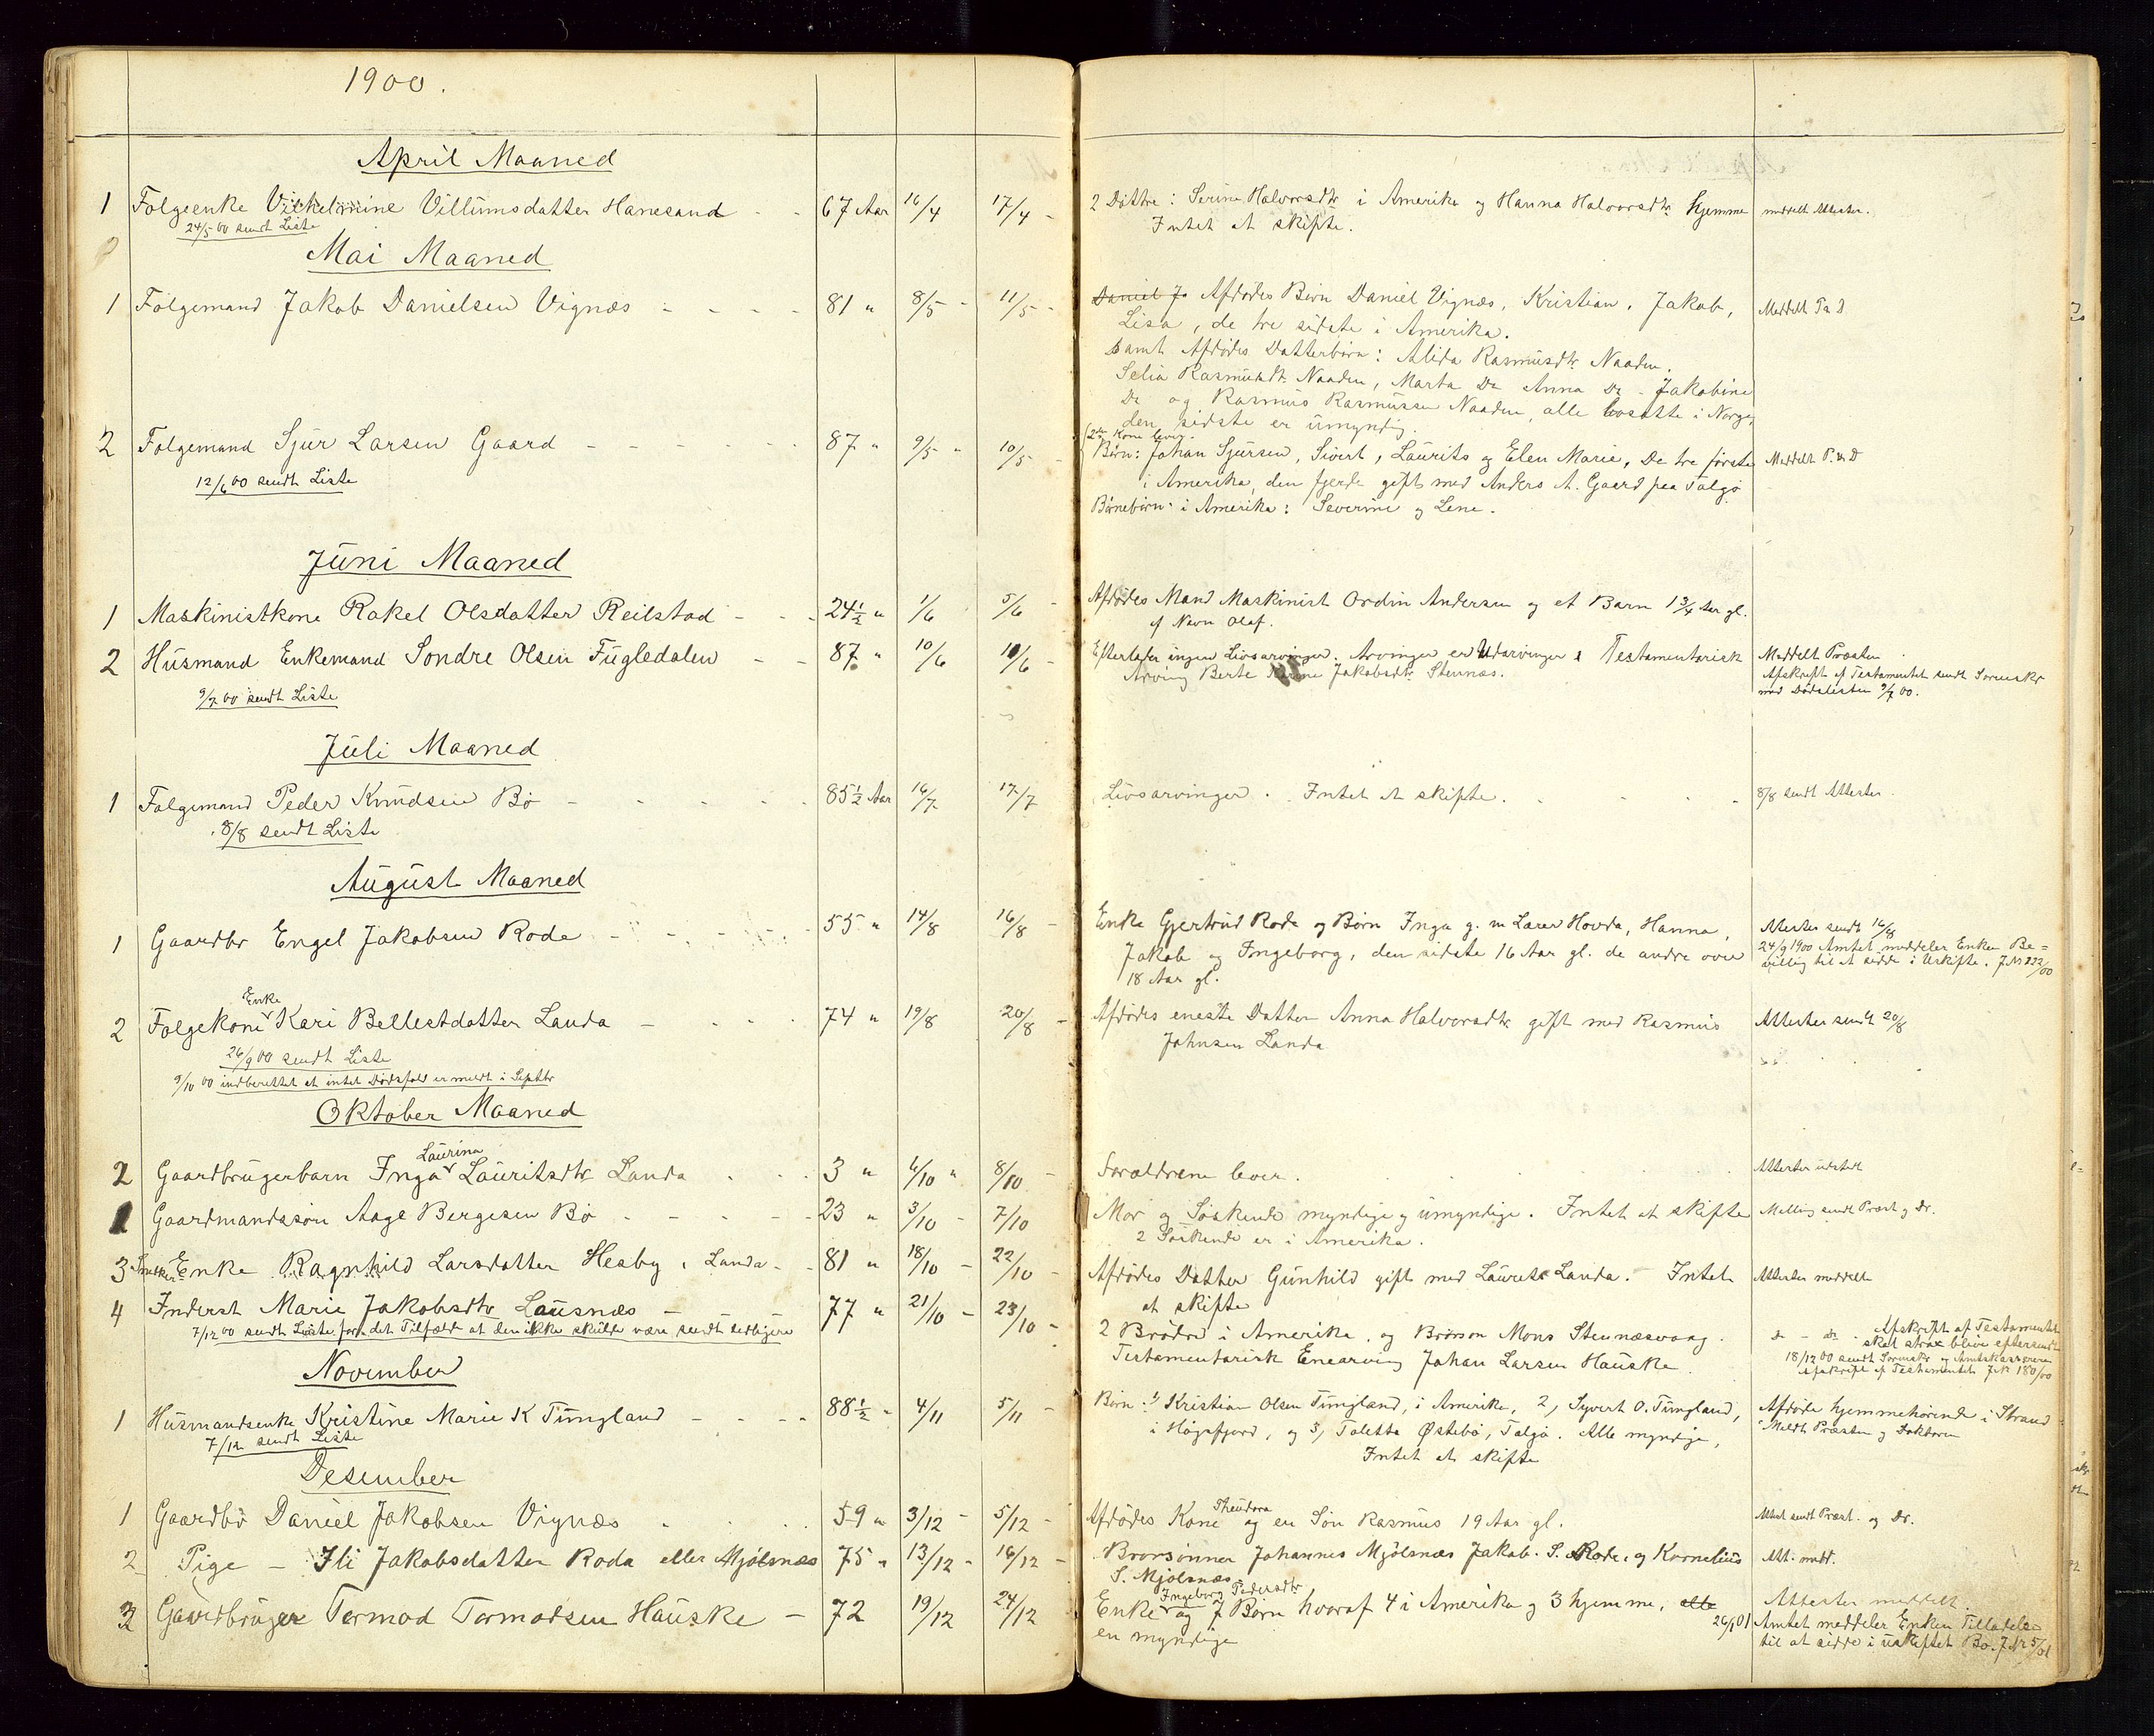 1900.
April Maaned
1 Folgeenke Vilhelmine Villumsdatter Hanesand - - 67 Aar 16/4 17/4 -
24/5 00 sendt Liste
Mai Maaned
1 Folgemand Jakob Danielsen Vignæs - - - - 81 " 8/5 - 11/5 -
2 Folgemand Sjur Larsen Gaard - - - - - 87 " 9/5 " 10/5 -
12/6 00 sendt Liste
Juni Maaned
1 Maskinistkone Rakel Olsdatter Reilstad - - - 24½ " 1/6 5/6 -
2 Husmand Enkemand Sondre Olsen Fugledalen - - 87 " 10/6 10/6 -
9/7 00 sendt Liste
Juli Maaned
1 Folgemand Peder Knudsen Bø - - - - - 85½ Aar 16/7 17/7
8/8 sendt Liste
August Maaned
1 Gaardbr Engel Jakobsen Roda - - - - - 55 " 14/8 16/8 -
Enke
2 Folgekone Kari Bellestdatter Landa - - - - 74 " 19/8 20/8 -
26/9 00 sendt Liste
9/10 00 indberettet at intet Dødsfald er meldt i Septbr
Oktober Maaned
Laurina
2 Gaardbrugerbarn Inga Lauritsdtr Landa - - - 3 " 6/10 " 8/10 -
1 Gaardmandssøn Aage Bergesen Bø - - - - - 23 " 3/10 - 7/10
3 Enke Ragnhild Larsdatter Hesby, Landa - - 81 " 18/10 - 22/10 -
4 Inderst Marie Jakobsdtr Lausnæs - - 77 " 21/10 - 23/10 -
7/12 00 sendt Liste for det Tilfælde at den ikke skulde være sendt tidligere
November
1 Husmandsenke Kristine Marie K Tungland - - - - 88½ " 4/11 5/11 -
7/12 sendt Liste
Desember
1 Gaardbr Daniel Jakobsen Vignæs - - - 59 " 3/12 - 5/12 -
2 Pige - Ili Jakobsdatter Roda eller Mjølsnæs 75 " 13/12 - 16/12 -
3 Gaardbruger Tormod Tormodsen Hauske - 72 19/12 24/12
2 Døttre: Serine Halvorsdtr i Amerika og Hanna Halvorsdtr hjemme meddelt Attester.
Intet at skifte.
Daniel Ja Afdødes Børn Daniel Vignæs, Kristian, Jakob, Meddelt P & D
Lisa, de tre sidste i Amerika.
Samt Afdødes Datterbørn: Alida Rasmusdtr Naaden.
Selia Rasmusdtr Naaden, Marta Do Anna Do - Jakobine
Do og Rasmus Rasmussen Naaden, alle bosatte i Norge,
den sidste er umyndig.
(2den Kone lever.
Børn: Johan Sjursen, Sivert, Laurits og Elen Marie, De tre første Meddelt P. & D
i Amerika, den fjerde gift med Anders A. Gaard paa Talgø
Børnebørn i Amerika: Severine og Lene.
Afdødes Mand Maskinist Ordin Andersen og et Barn 1¾ Aar gl.
af Navn Olaf.
Efterlader ingen Livsarvinger. Arvinger er Udarvinger & Testamentarisk Meddelt Præsten
Arving Berte Jakobsdtr Stennæs. Afskrift af Testamentet sendt Sorenskr
med Dødslisten 9/7 00.
Livsarvinger. Intet at skifte. - - - - 8/8 sendt Attester.
Enke Gjertrud Roda og Børn Inga g. m Lærer Hovda, Hanna, Attester sendt 16/8
Jakob og Ingeborg, den sidste 16 Aar gl. de andre over 24/9 1900 Amtet meddeler Enken Be=
18 Aar gl. villing til at sidde i Uskifte. J.N 232/00
Afdødes eneste Datter Anna Halvorsdtr gift med Rasmus Attester sendt 20/8
Johnsen Landa
Forældrene lever. Attester udstedt
Mor og Søskende myndige og umyndige. Intet at skifte Melding sendt Præst og Dr.
2 Søskende er i Amerika.
Afdødes Datter Gunhild gift med Laurits Landa. Intet Attester meddelt
at skifte
2 Brødre i Amerika, og Brorson Mons Stennæsvaag. do - do - Afskrift af Testamentet
Testamentarisk Enearving Johan Larsen Hauske. skal strax blive eftersendt
18/12 00 sendt Sorenskr og Amtskassereren
Afskrift af Testamentet J.N 180/00
Børn: 1) Kristian Olsen Tungland, i Amerika, 2) Syvert O. Tungland, Afdøde hjemmehørende i Strand
i Høgsfjord, og 3) Taletta Østebø, Talgø. Alle myndige, Meldt Præsten og Doktoren
Intet at skifte
Theodora
Afdødes Kone og en Søn Rasmus 19 Aar gl. Attest sendt Præst. og Dr.
Brorsønner Johannes Mjølsnæs Jakob. S. Roda, og Kornelius Att. medd.
S. Mjølsnæs
Ingeborg Pedersdtr
Enke og 7 Børn hvoraf 4 i Amerika og 3 hjemme, alle Attester meddelt.
en myndige 26/1 01 Amtet meddeler Enken Tilladelse
til at sidde i uskiftet Bo. J.Nr 5/01